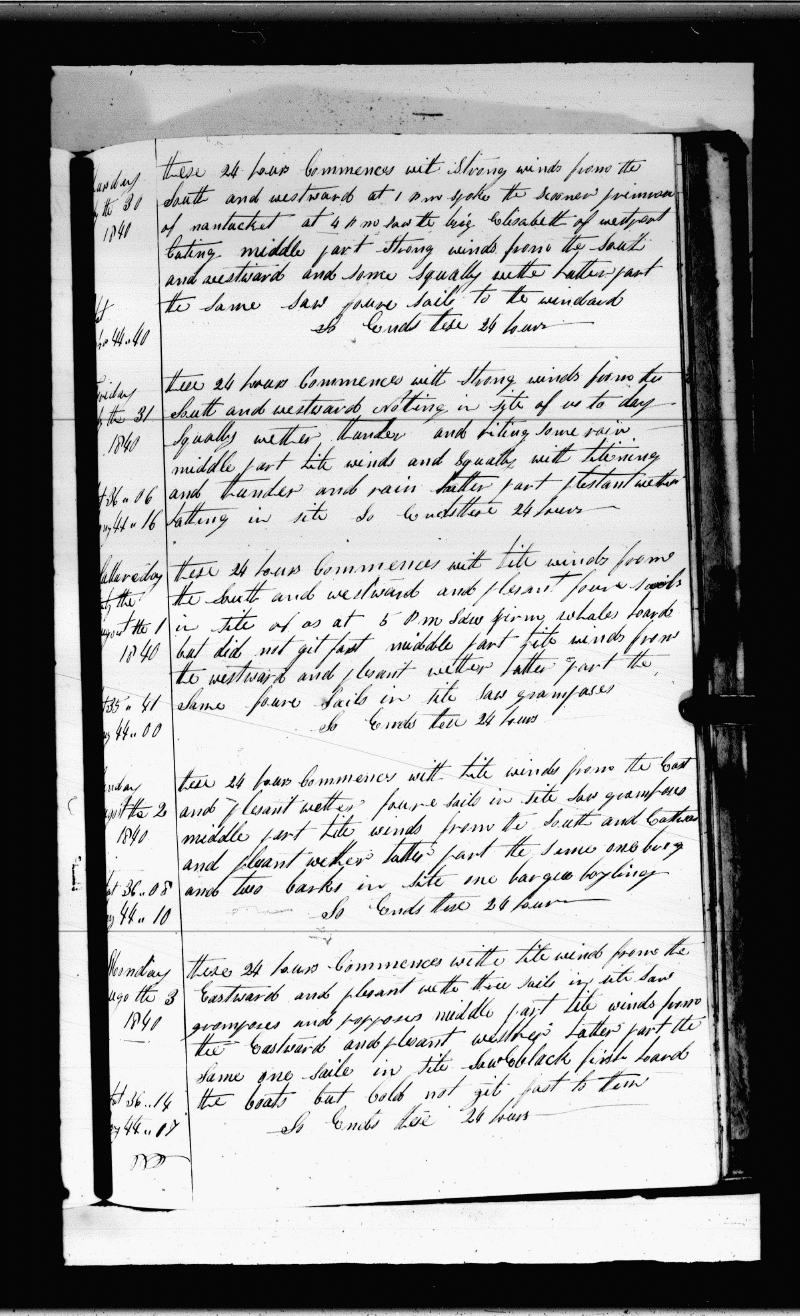 these 24 hours Commences wit Strong winds from the
South and westward at 1 P m spoke the scooner
of nantucket at 4 P m saw the brig Elisabeth of westport
Cuting middle part Strong winds from the South
and westward and some squally wethe Latter part
the same saw foure sails to the windard
So Ends these 24 hours
30
1840
44 " 40
these 24 hours Commences with Strong winds from the
South and westward Nothing in site of us to day
Squally wether thunder and liting some rain
middle part lite winds and Squally with litening
and thunder and rain latter part plesant wether
in site So Ends these 24 hours
the 31
1840
36 " 06
44 " 16
these 24 hours Commences with lite winds from
the South and westward and plesant foure sails
in site of us at 5 P m saw whales loard
but did not git fast middle part lite winds from
the westward and plesant wether latter part the
Same foure Sails in site saw grampuses
So Ends these 24 hours
the 1
1840
35 " 41
44 " 00
these 24 hours Commences with lite winds from the East
and plesant wether foure sails in site saw grampuses
middle part lite winds from the South and Eastward
and plesant wether latter part the same one burg
and two barks in site one barque boyling
So Ends these 24 hours
the 2
1840
36 " 08
44 " 10
these 24 hours Commences withe lite wind from the
Eastward and plesant wethe three sails in site saw
grampuses and porposes middle part lite winds from
the Eastward and plesant wether Latter part the
same one saile in site saw black fish loard
the boats but Cold not git fast to them
So Ends these 24 hours
Monday
the 3
1840
36 " 14
44 " 07